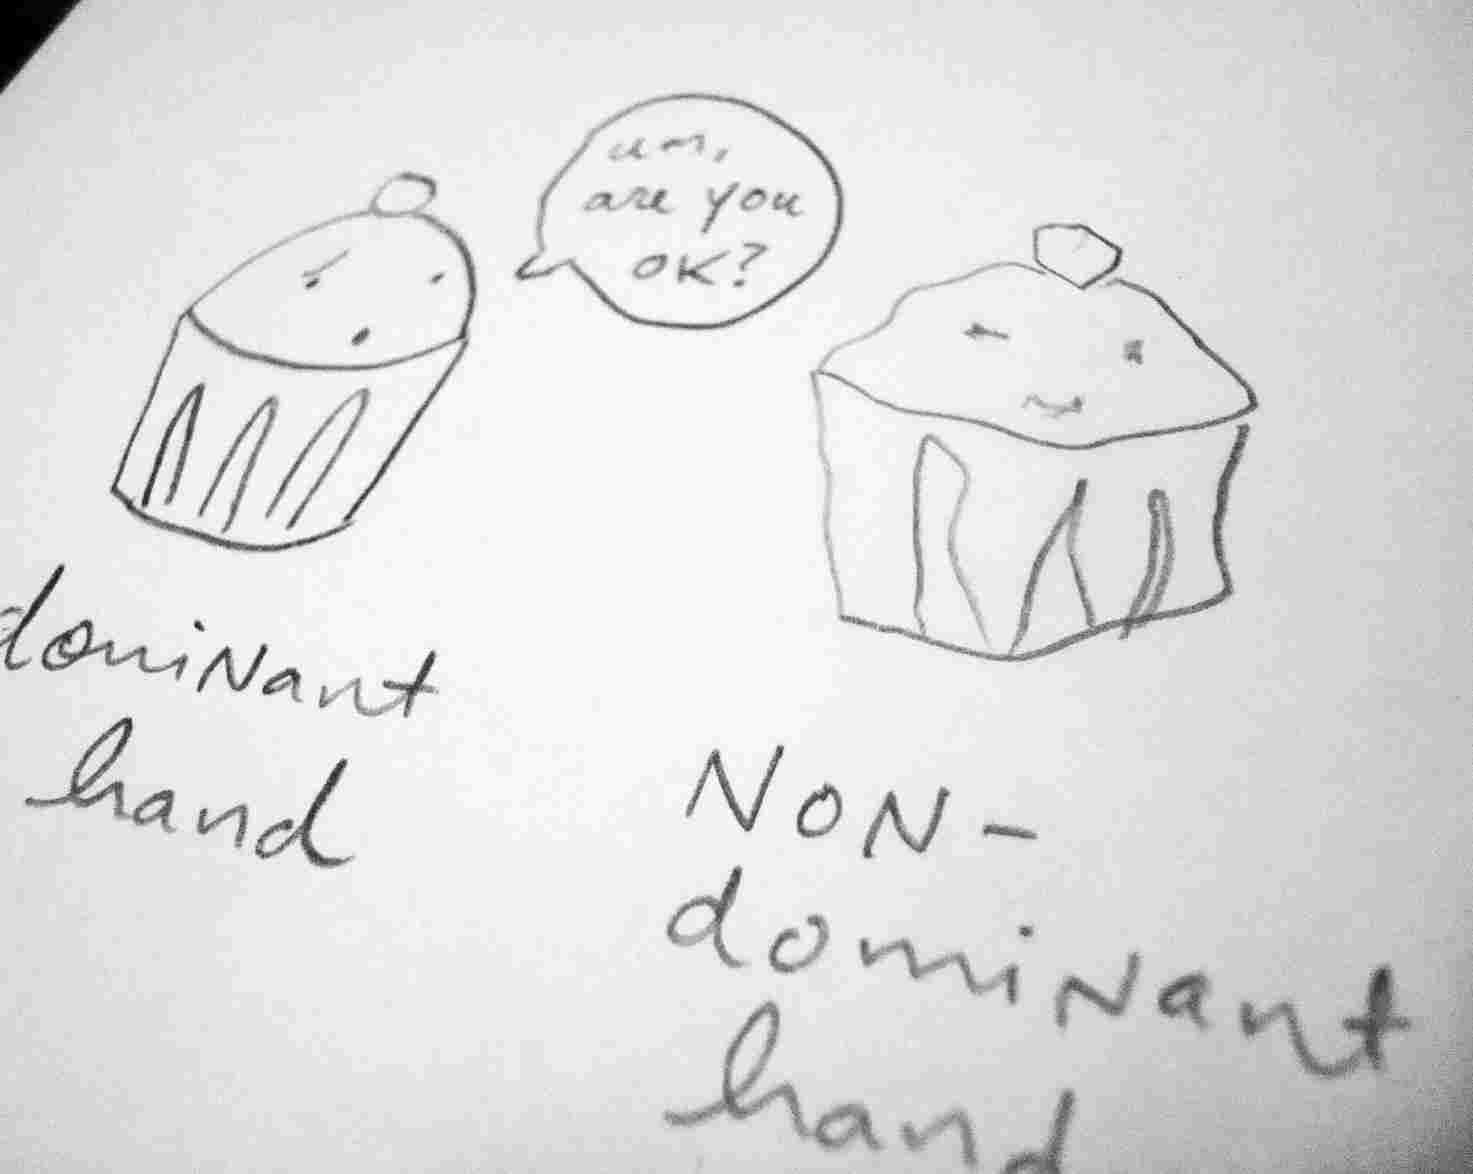 um,
are you
OK?
dominant
hand
NON-
dominant
hand